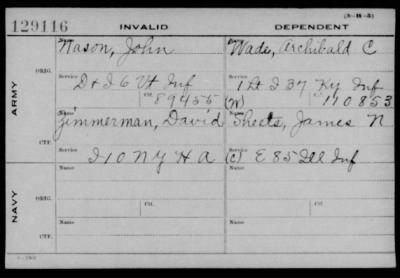 (3-H-3)
129116 INVALID DEPENDENT
ARMY
NAVY
ORIG. Name Nason, John Name Wade, Archibald C
Service D & I 6 Vt Inf Service 1 Lt I 37 Ky Inf
Ctf. 89455 (W) Ctf. 170853
CTF. Name Zimmerman, David Name Sheets, James N
Service I 10 N Y H A Service (C) E 85 Ill Inf
ORIG. Name Ctf. Name Ctf.
CTF. Name Name